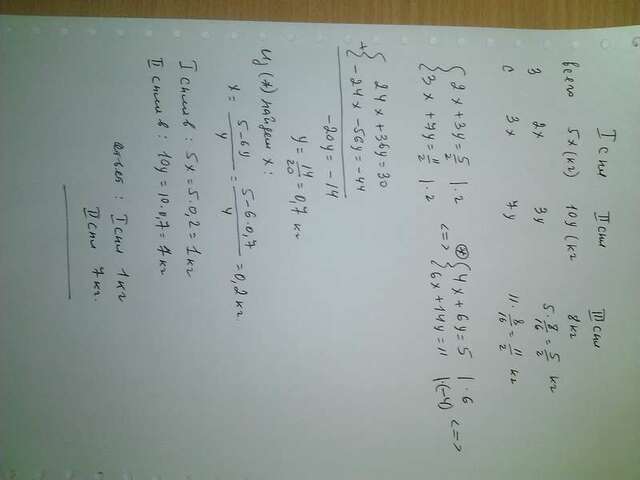 I спл II спл III спл
всего 5x (кг) 10y (кг 8кг
з 2x 3y 5·8/16=5/2 кг
с 3x 7y 11·8/16=11/2 кг
{2x+3y=5/2 |·2 <=> (*) {4x+6y=5 |·6
{3x+7y=11/2 |·2 {6x+14y=11 |·(-4) <=>
+{ 24x+36y=30
-24x-56y=-44
-20y=-14
y=14/20=0,7 кг
Из (*) найдем x:
x=5-6y/4=5-6·0,7/4=0,2кг.
I сплав: 5x=5·0,2=1кг
II сплав: 10y=10·0,7=7кг
ответ: I спл 1кг
II спл 7кг.